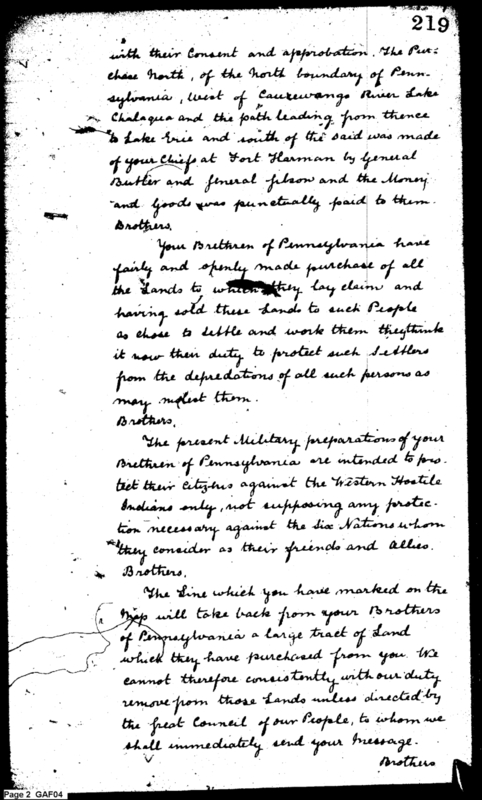 219
with their Consent and approbation. The Pur=
chase North, of the North boundary of Penn-
sylvania, West of Cauzewango River Lake
Chalaqua and the path leading from thence
to Lake Erie and south of the said was made
of your Chiefs at Fort Harman by General
Butler and General Gibson and the Money
and Goods was punctually paid to them.
Brothers,
Your Brethren of Pennsylvania have
fairly and openly made purchase of all
the Lands to which they lay claim and
having sold these Lands to such People
as chose to settle and work them they think
it now their duty to protect such Settlers
from the depredations of all such persons as
may molest them.
Brothers,
The present Military preparations of your
Brethren of Pennsylvania are intended to pro-
tect their Citizens against the Western Hostile
Indians only, not supposing any protec-
tion necessary against the Six Nations whom
they consider as their friends and Allies.
Brothers,
The Line which you have marked on the
Map will take back from your Brothers
of Pennsylvania a large tract of Land
which they have purchased from you. We
cannot therefore consistently with our duty
remove from those Lands unless directed by
the Great Council of our People, to whom we
shall immediately send your Message.
Brothers
Page 2 GAF04